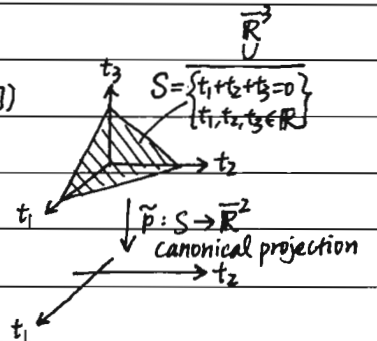 ℝ̅³
∪
t₃
S = {t₁+t₂+t₃=0
t₁,t₂,t₃∈ℝ}
])
t₂
t₁
p̃ : S → ℝ̅²
canonical projection
t₂
t₁